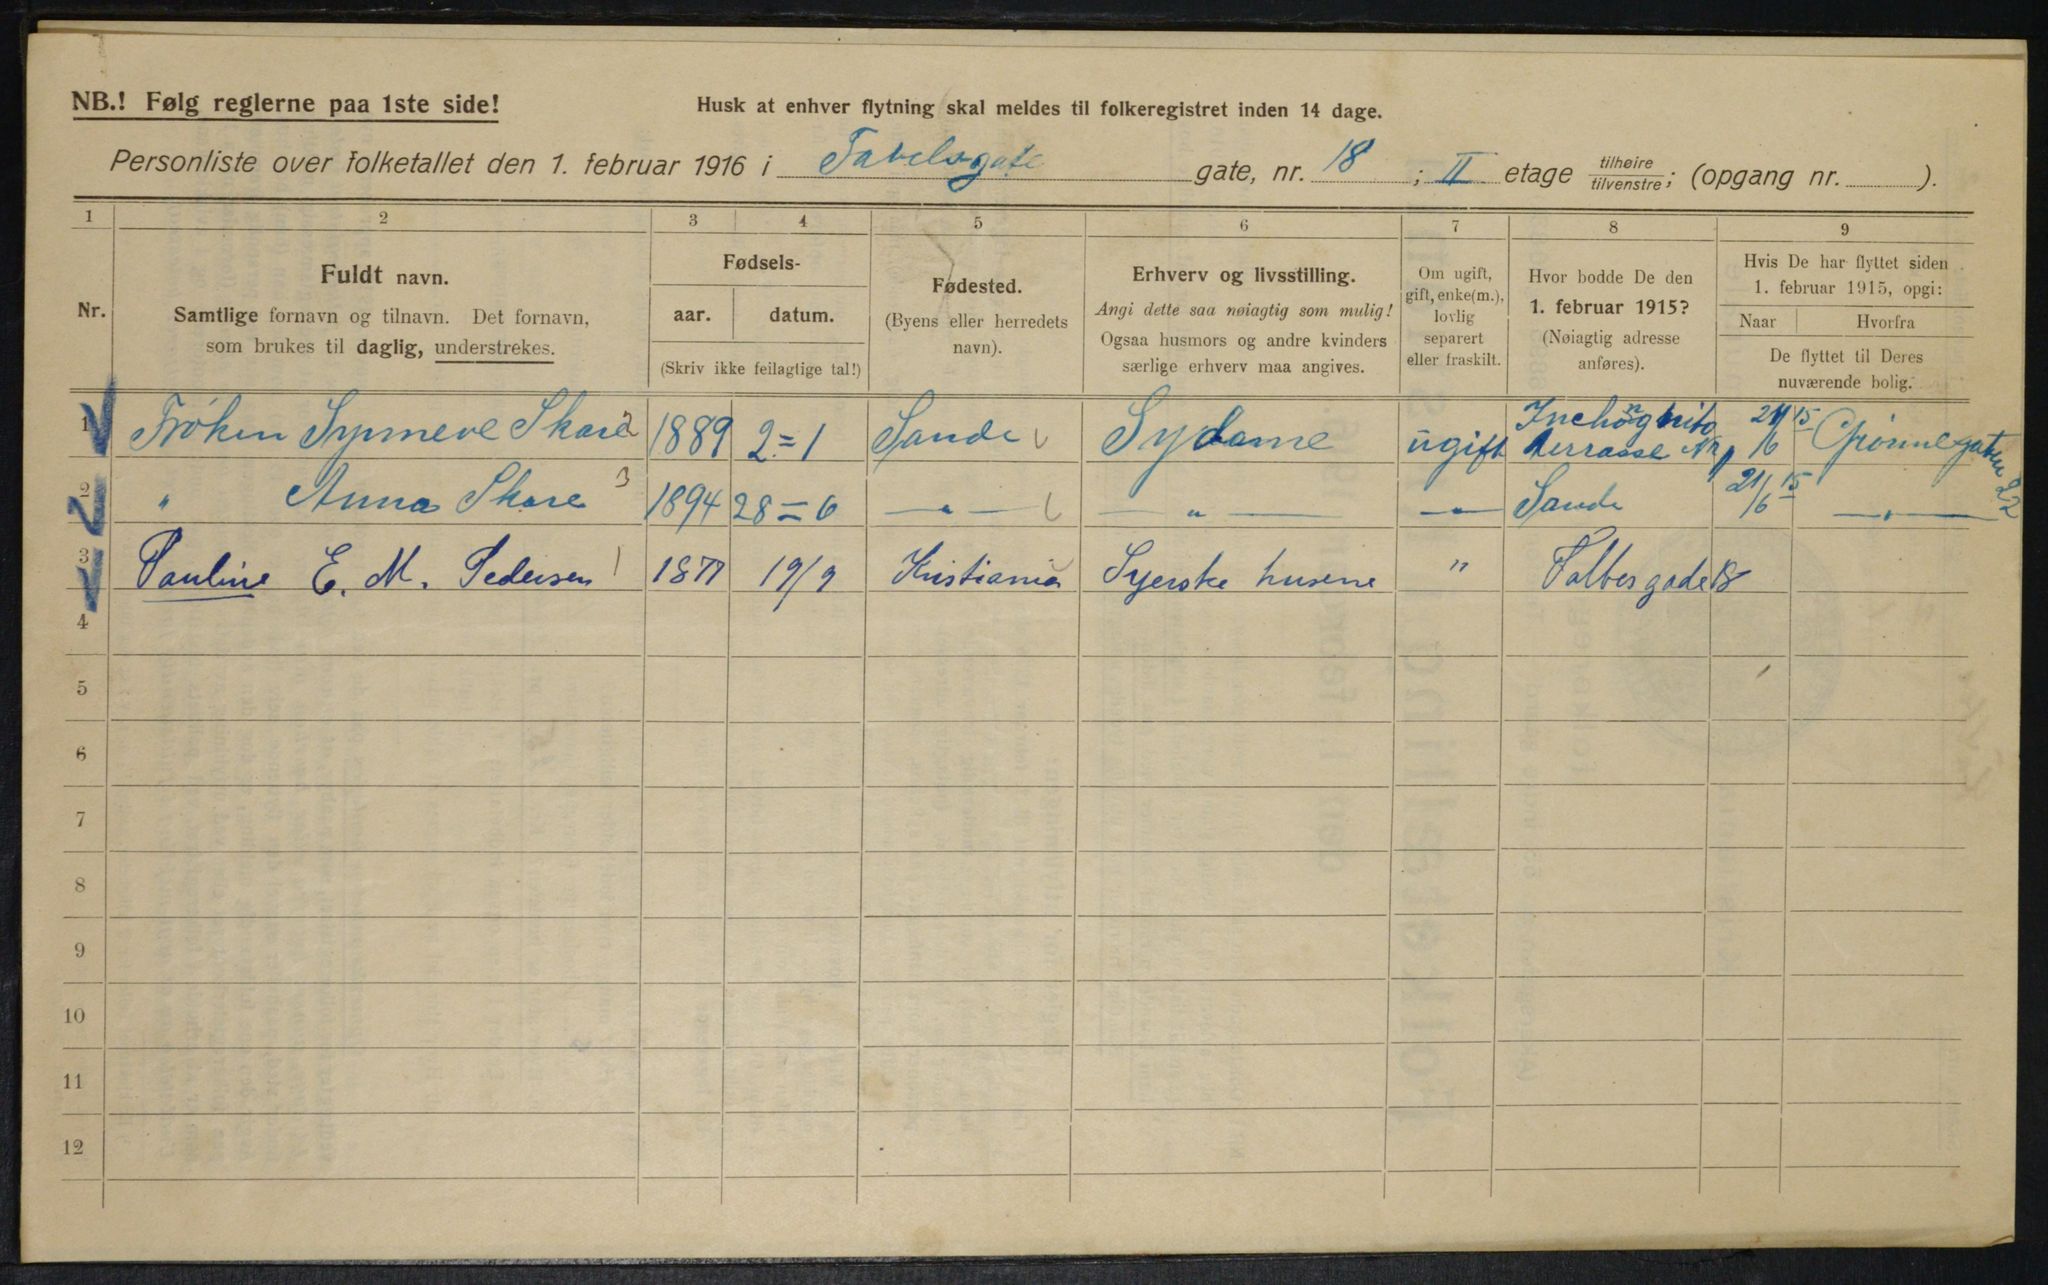 NB.! Følg reglerne paa 1ste side!
Husk at enhver flytning skal meldes til folkeregistret inden 14 dage.
Personliste over folketallet den 1. februar 1916 i Favelsgate gate, nr. 18 ; II etage tilhøire/tilvenstre; (opgang nr. ).
1 2 3 4 5 6 7 8 9
Nr.
Fuldt navn.
Samtlige fornavn og tilnavn. Det fornavn,
som brukes til daglig, understrekes.
Fødsels-
aar. datum.
(Skriv ikke feilagtige tal!)
Fødested.
(Byens eller herredets
navn).
Erhverv og livsstilling.
Angi dette saa nøiagtig som mulig!
Ogsaa husmors og andre kvinders
særlige erhverv maa angives.
Om ugift,
gift, enke(m.),
lovlig
separert
eller fraskilt.
Hvor bodde De den
1. februar 1915?
(Nøiagtig adresse
anføres).
Hvis De har flyttet siden
1. februar 1915, opgi:
Naar Hvorfra
De flyttet til Deres
nuværende bolig.
1 Frøken Synneve Skare 2 1889 2=1 Sande Sydame ugift Inchognito terrasse 21/6 15 Grønnegaten 22
2 " Anna Skare 3 1894 28=6 —"— —"— —"— Sande 21/6 15 —"—
3 Pauline E. M. Pedersen 1 1877 19/9 Kristiania Syerske husene " Falbesgade 18
4
5
6
7
8
9
10
11
12